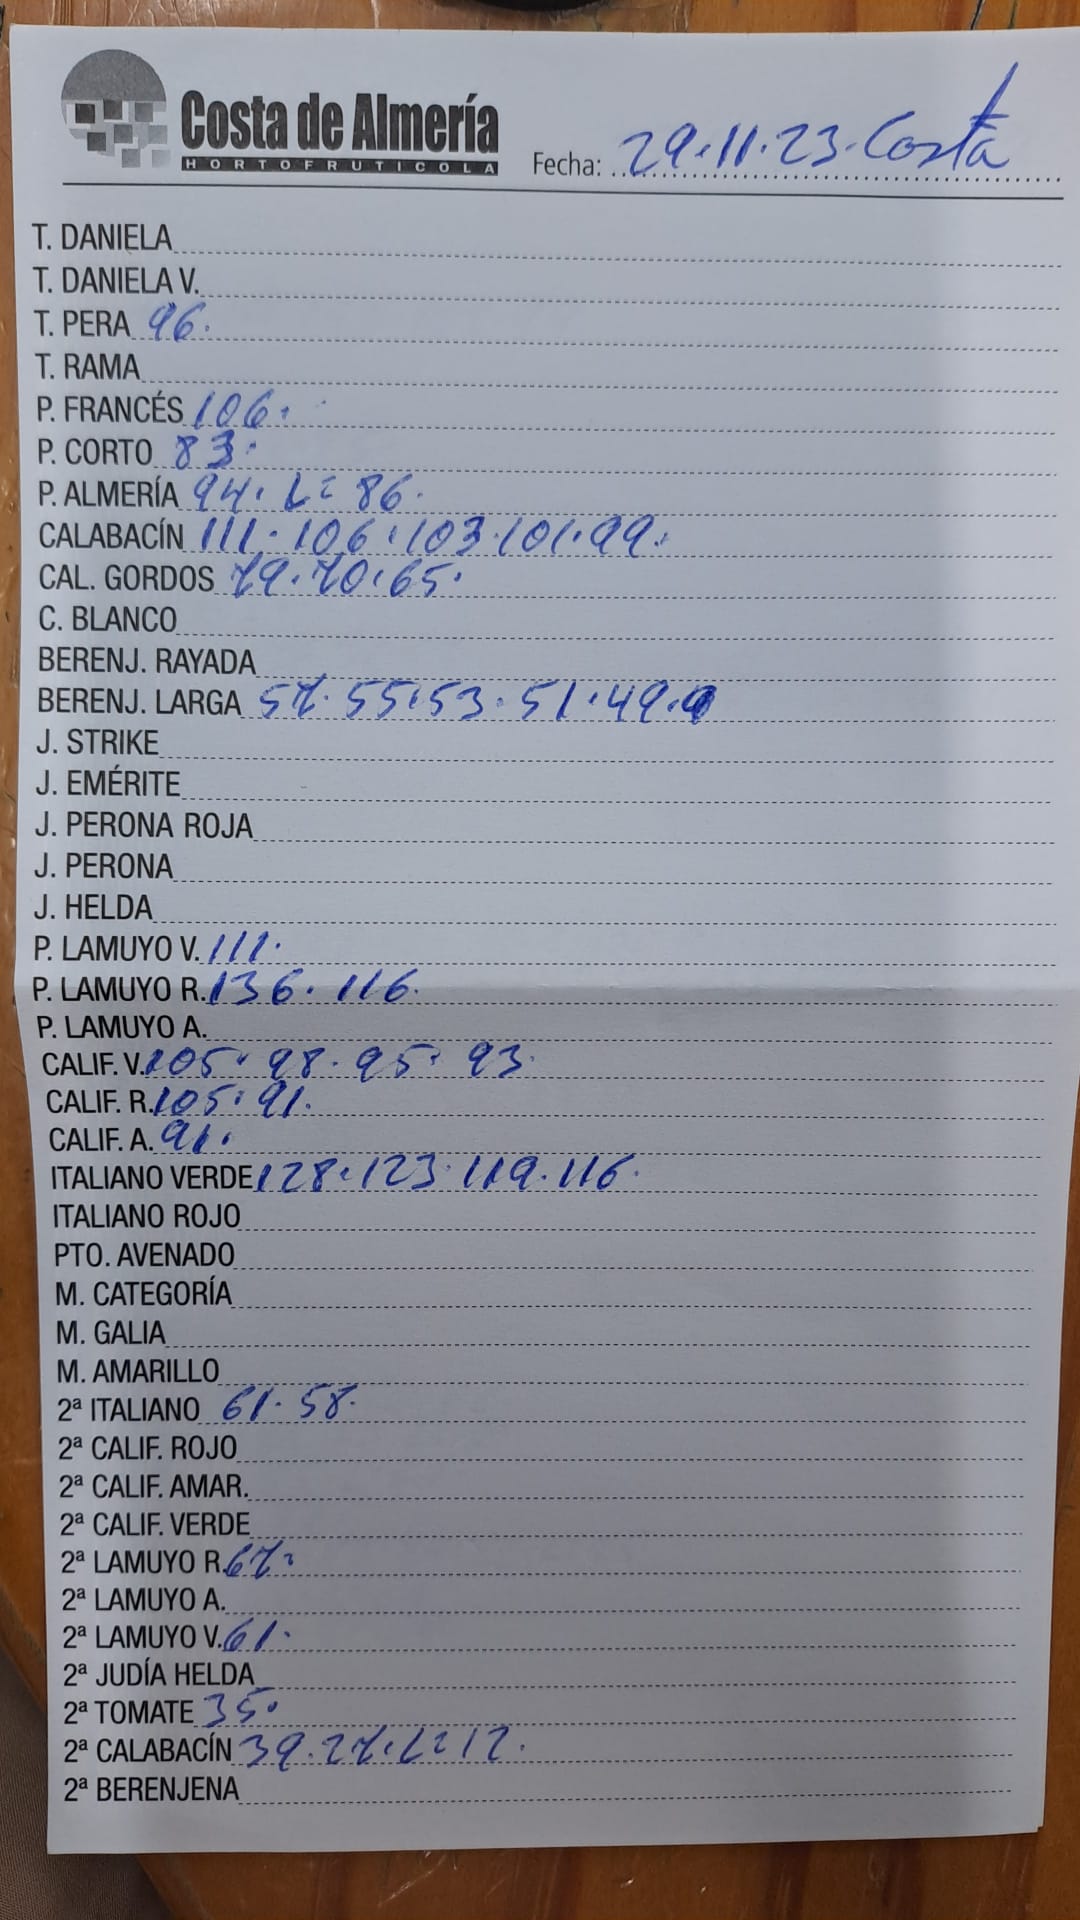 Costa de Almería
HORTOFRUTICOLA
Fecha: 29.11.23. Costa
T. DANIELA
T. DANIELA V.
T. PERA 96.
T. RAMA
P. FRANCÉS 106.
P. CORTO 83.
P. ALMERÍA 94. L= 86.
CALABACÍN 111. 106. 103. 101. 99.
CAL. GORDOS 79. 70. 65.
C. BLANCO
BERENJ. RAYADA
BERENJ. LARGA 57. 55. 53. 51. 49.
J. STRIKE
J. EMÉRITE
J. PERONA ROJA
J. PERONA
J. HELDA
P. LAMUYO V. 111.
P. LAMUYO R. 136. 116.
P. LAMUYO A.
CALIF. V. 105. 98. 95. 93.
CALIF. R. 105. 91.
CALIF. A. 91.
ITALIANO VERDE 128. 123. 119. 116.
ITALIANO ROJO
PTO. AVENADO
M. CATEGORÍA
M. GALIA
M. AMARILLO
2ª ITALIANO 61. 58.
2ª CALIF. ROJO
2ª CALIF. AMAR.
2ª CALIF. VERDE
2ª LAMUYO R. 67.
2ª LAMUYO A.
2ª LAMUYO V. 61.
2ª JUDÍA HELDA
2ª TOMATE 35.
2ª CALABACÍN 39. 27. L= 12.
2ª BERENJENA